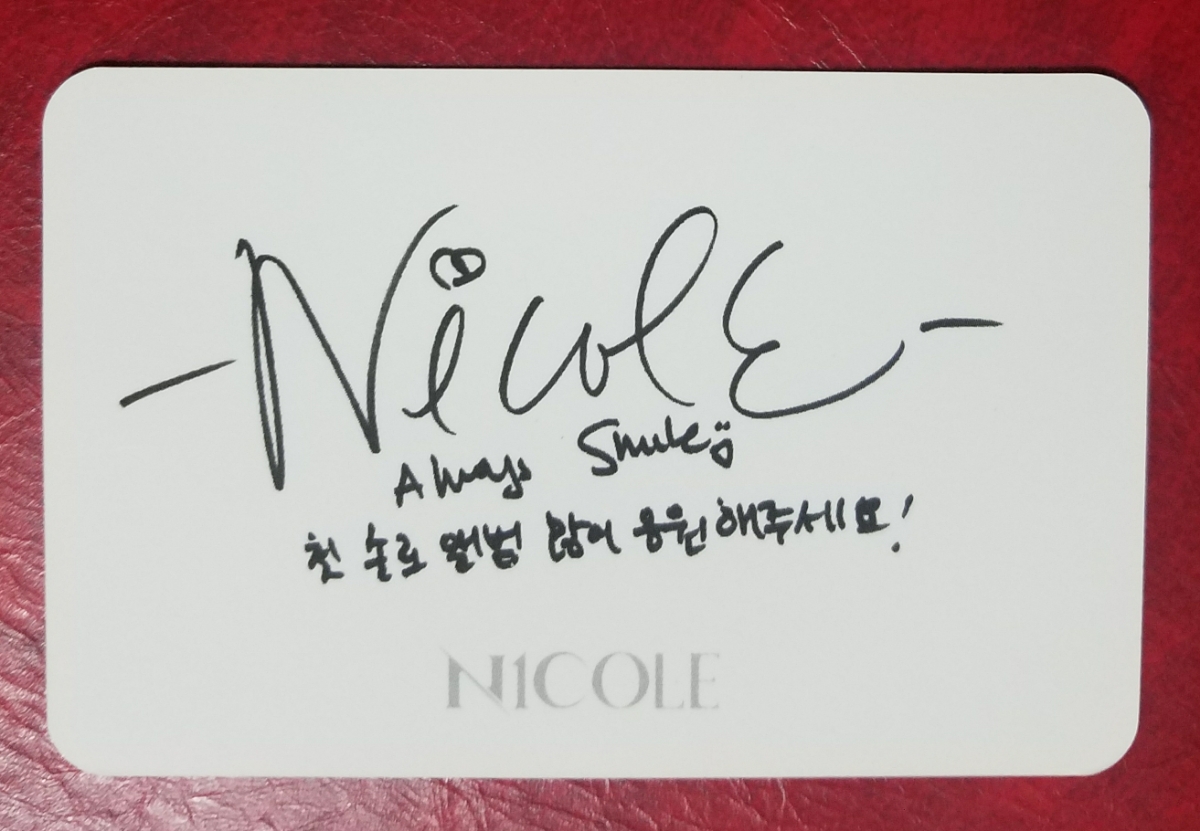 -NicolE-
Always Smile
첫 솔로 앨범 많이 응원해주세요!
N1COLE